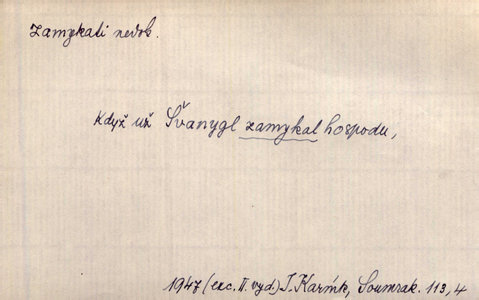 Zamykati nedok.
Když už Švanygl zamykal hospodu,
1947 (exc. II. vyd.) J. Karník, Soumrak. 113, 4